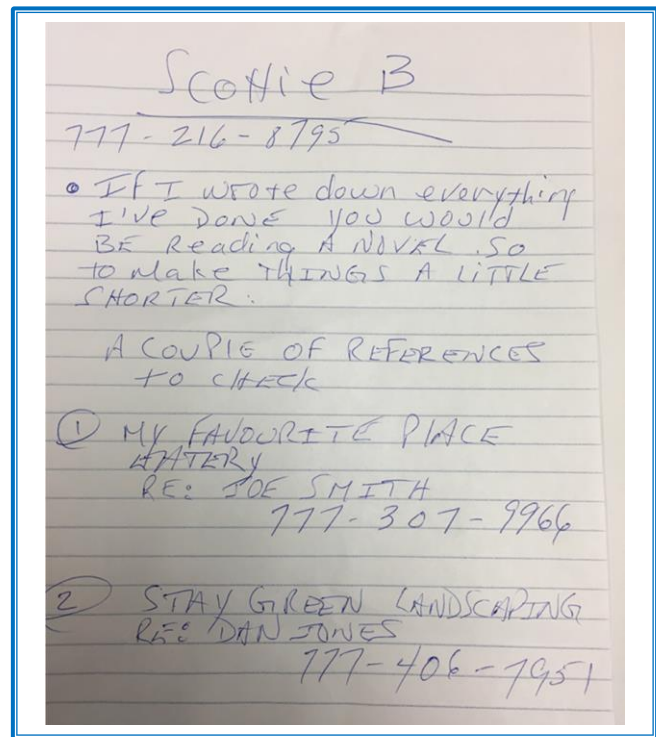 Scottie B
777-216-8795
• If I wrote down everything
I've DONE you would
BE Reading A NOVEL. SO
to Make THINGS A LiTTLE
SHORTER.
A COUPlE OF REFERENCES
to cHEck
① MY FAVOURITE PlACE
EATERY
RE: JOE SMITH
777-307-9966
② STAY GREEN LANDSCAPING
RE: DAN JONES
777-406-7951